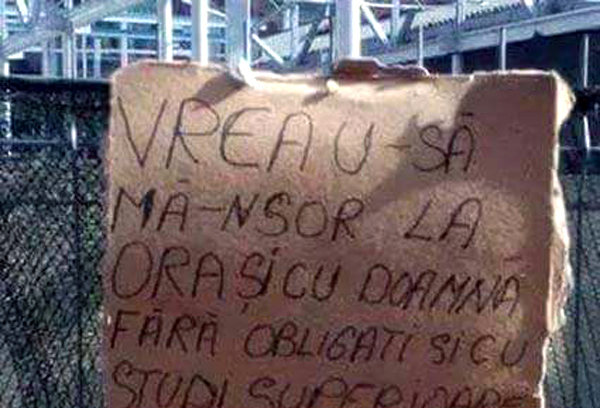 VREAU-SĂ
MĂ-NSOR LA
ORAȘI CU DOAMNĂ
FĂRĂ OBLIGATI SI CU
STUDI SUPERIOARE